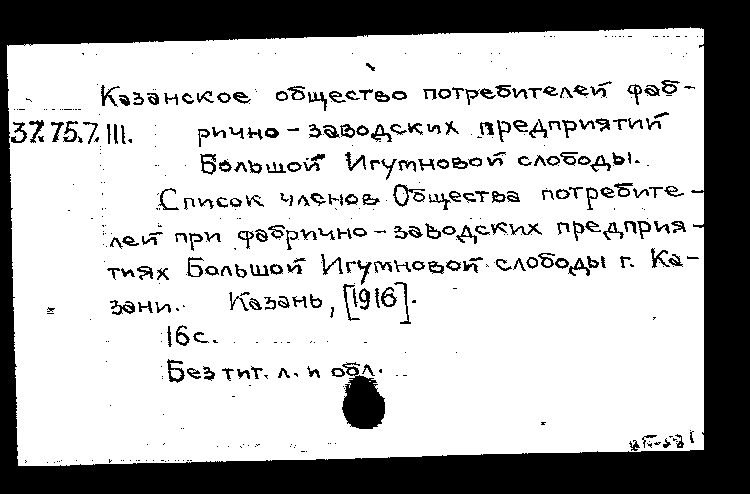 Казанское общество потребителей фаб-
37.75.7.III. рично-заводских предприятий
Большой Игумновой слободы.
Список членов Общества потребите-
лей при фабрично-заводских предприя-
тиях Большой Игумновой слободы г. Ка-
зани. Казань, [1916].
16 с.
Без тит. л. и обл.